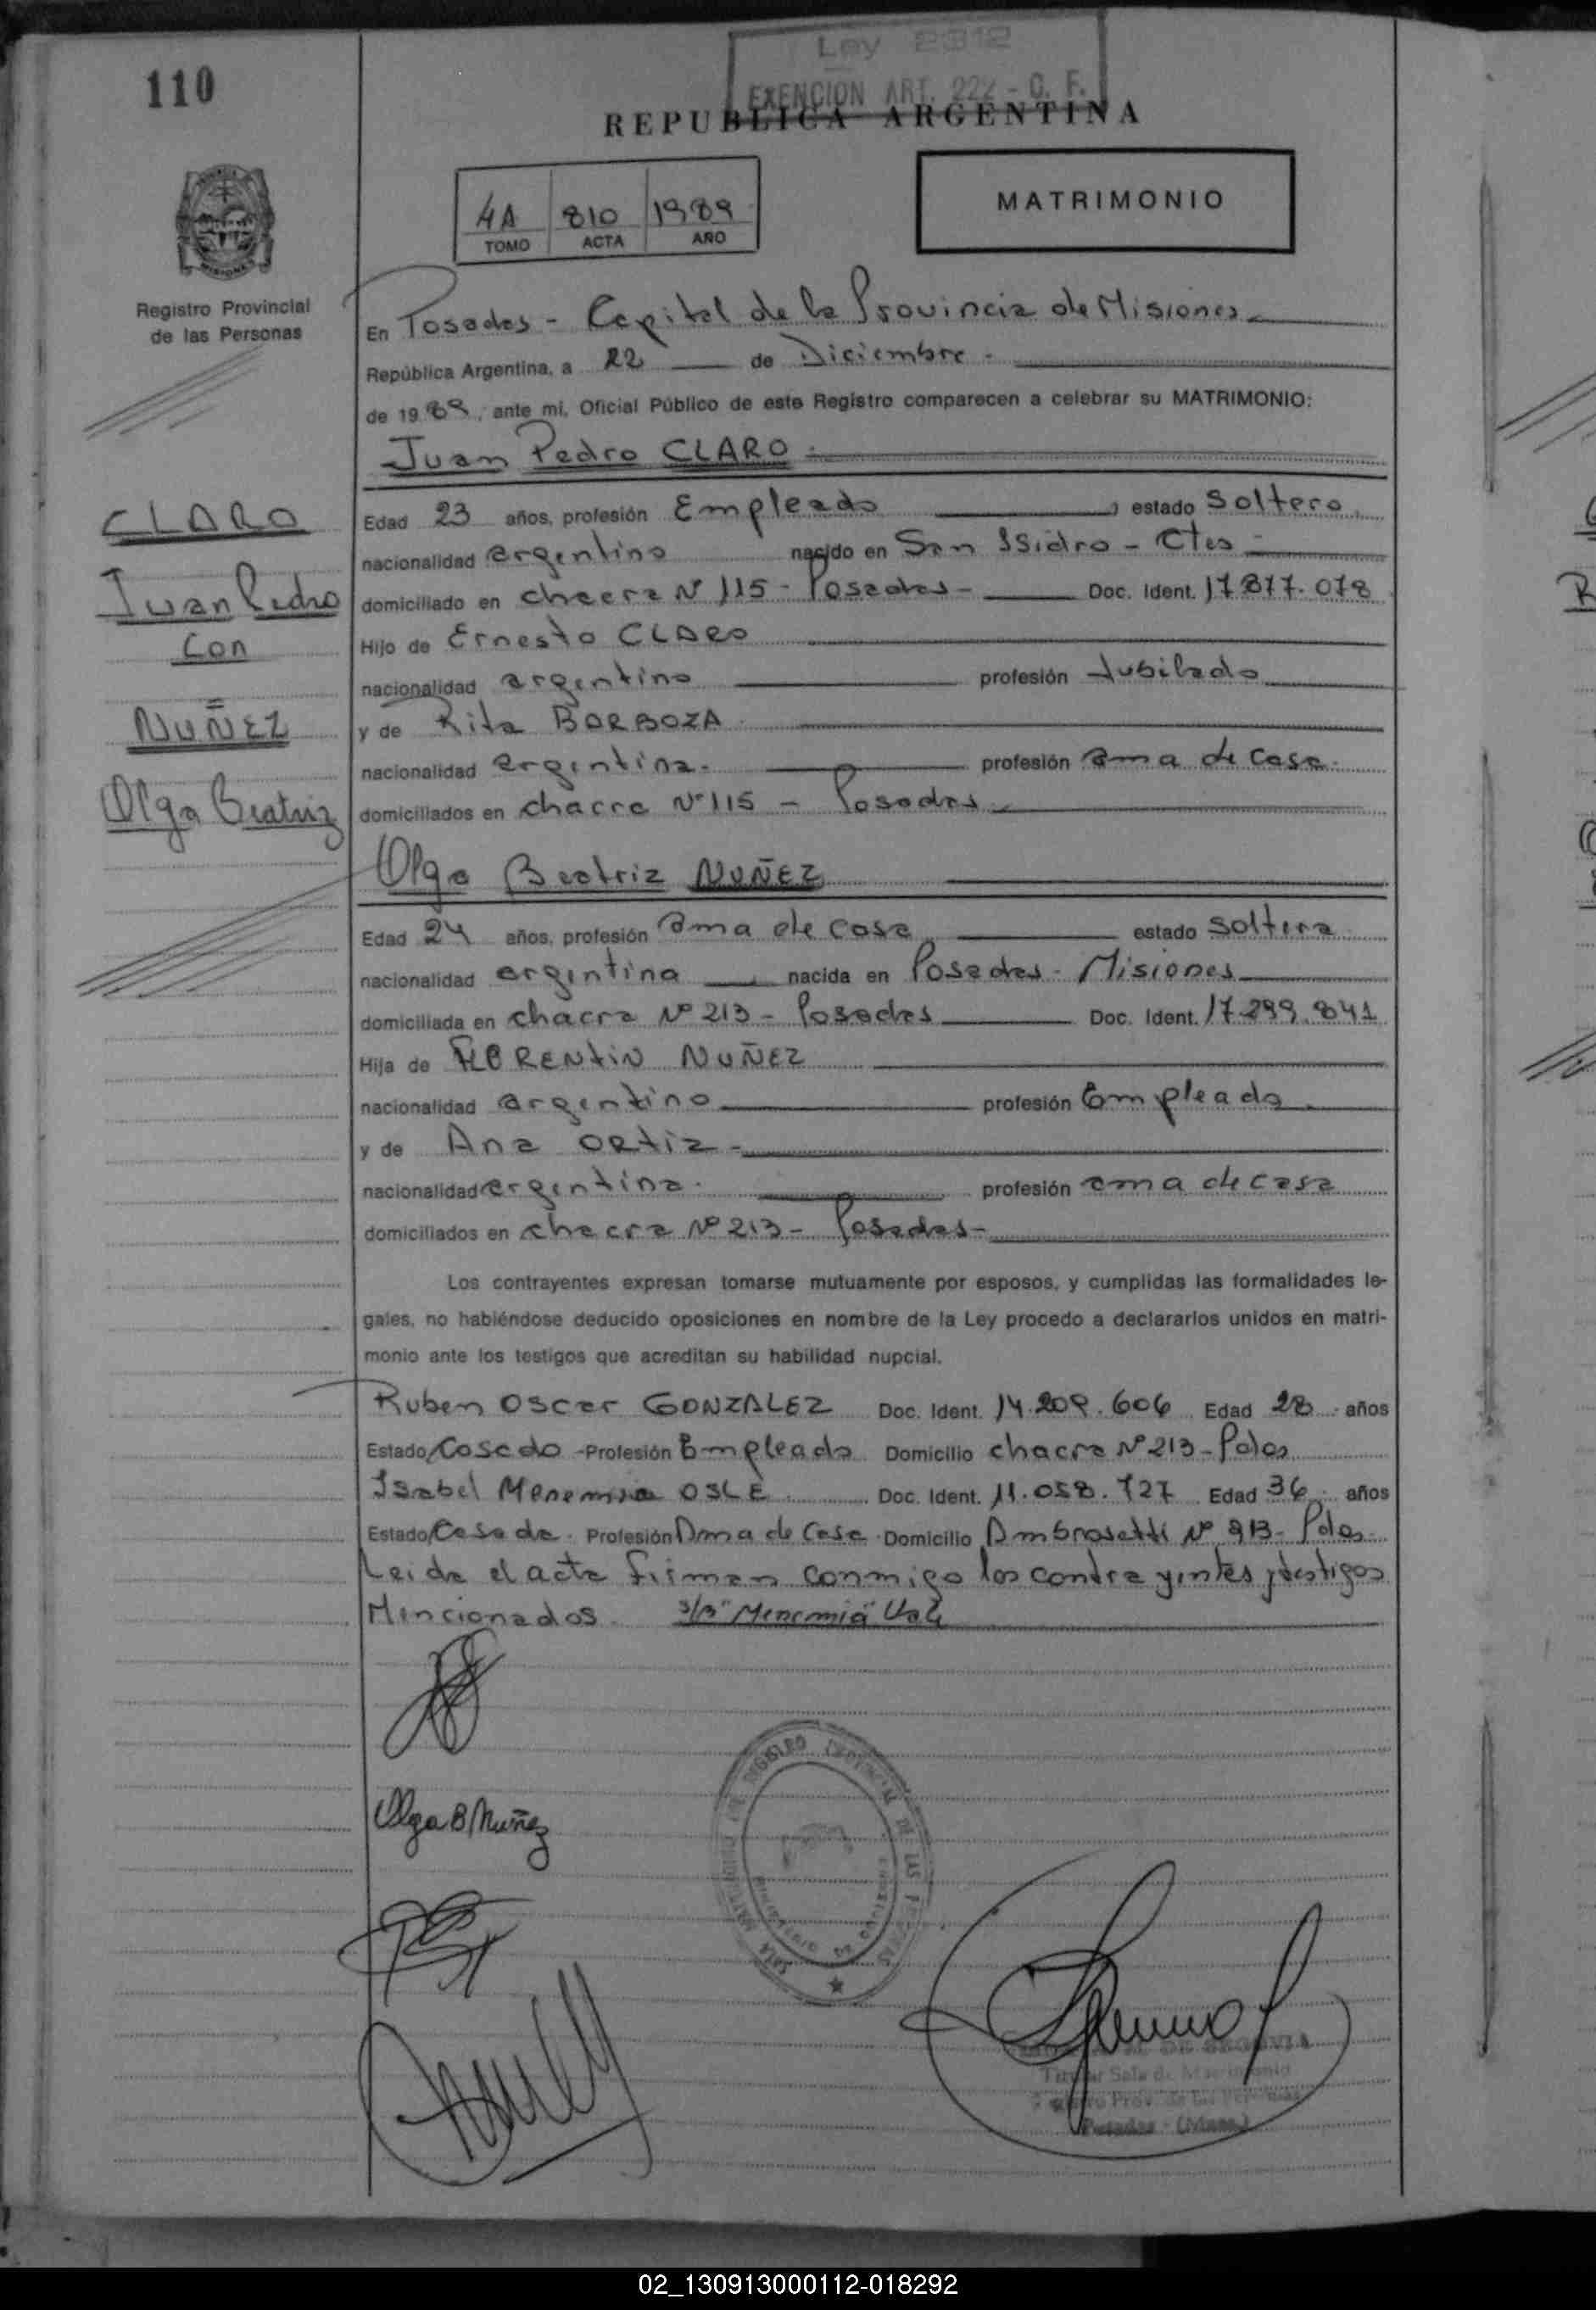 110
Ley 2312
EXENCION ART. 222 - C. F.
REPUBLICA ARGENTINA
4A 810 1989
TOMO ACTA AÑO
MATRIMONIO
Registro Provincial
de las Personas
En Posadas - Capital de la Provincia de Misiones
República Argentina, a 22 de Diciembre -
de 1989, ante mi, Oficial Público de este Registro comparecen a celebrar su MATRIMONIO:
Juan Pedro CLARO
CLARO
Juan Pedro
con
NUÑEZ
Olga Beatriz
Edad 23 años, profesión Empleado, estado Soltero,
nacionalidad argentino nacido en San Isidro - Ctes -
domiciliado en chacra Nº 115 - Posadas - Doc. Ident. 17.877.078
Hijo de Ernesto CLARO
nacionalidad argentino profesión Jubilado
y de Rita BORBOZA
nacionalidad argentina. profesión ama de casa.
domiciliados en chacra Nº 115 - Posadas -
Olga Beatriz NUÑEZ
Edad 24 años, profesión ama de casa estado Soltera
nacionalidad argentina nacida en Posadas - Misiones
domiciliada en chacra Nº 213 - Posadas Doc. Ident. 17.299.841
Hija de FLORENTIN NUÑEZ
nacionalidad argentino profesión Empleado
y de Ana ORTIZ -
nacionalidad argentina. profesión ama de casa
domiciliados en chacra Nº 213 - Posadas -
Los contrayentes expresan tomarse mutuamente por esposos, y cumplidas las formalidades le-
gales, no habiéndose deducido oposiciones en nombre de la Ley procedo a declararlos unidos en matri-
monio ante los testigos que acreditan su habilidad nupcial.
Ruben Oscar GONZALEZ Doc. Ident. 14.209.606 Edad 28 años
Estado Casado - Profesión Empleado Domicilio chacra Nº 213 - Pdas
Isabel OSLE Doc. Ident. 11.058.727 Edad 36 años
Estado Casada. Profesión Ama de Casa Domicilio Ambrosetti Nº 913 - Pdas
Leida el acta firman conmigo los contrayentes y testigos
Mencionados. S/B "Menemia" Vale
Olga B Nuñez
DE SEGOVIA
Sala de Matrimonio
Prov. de las Personas
Posadas - (Mnes.)
02_130913000112-018292